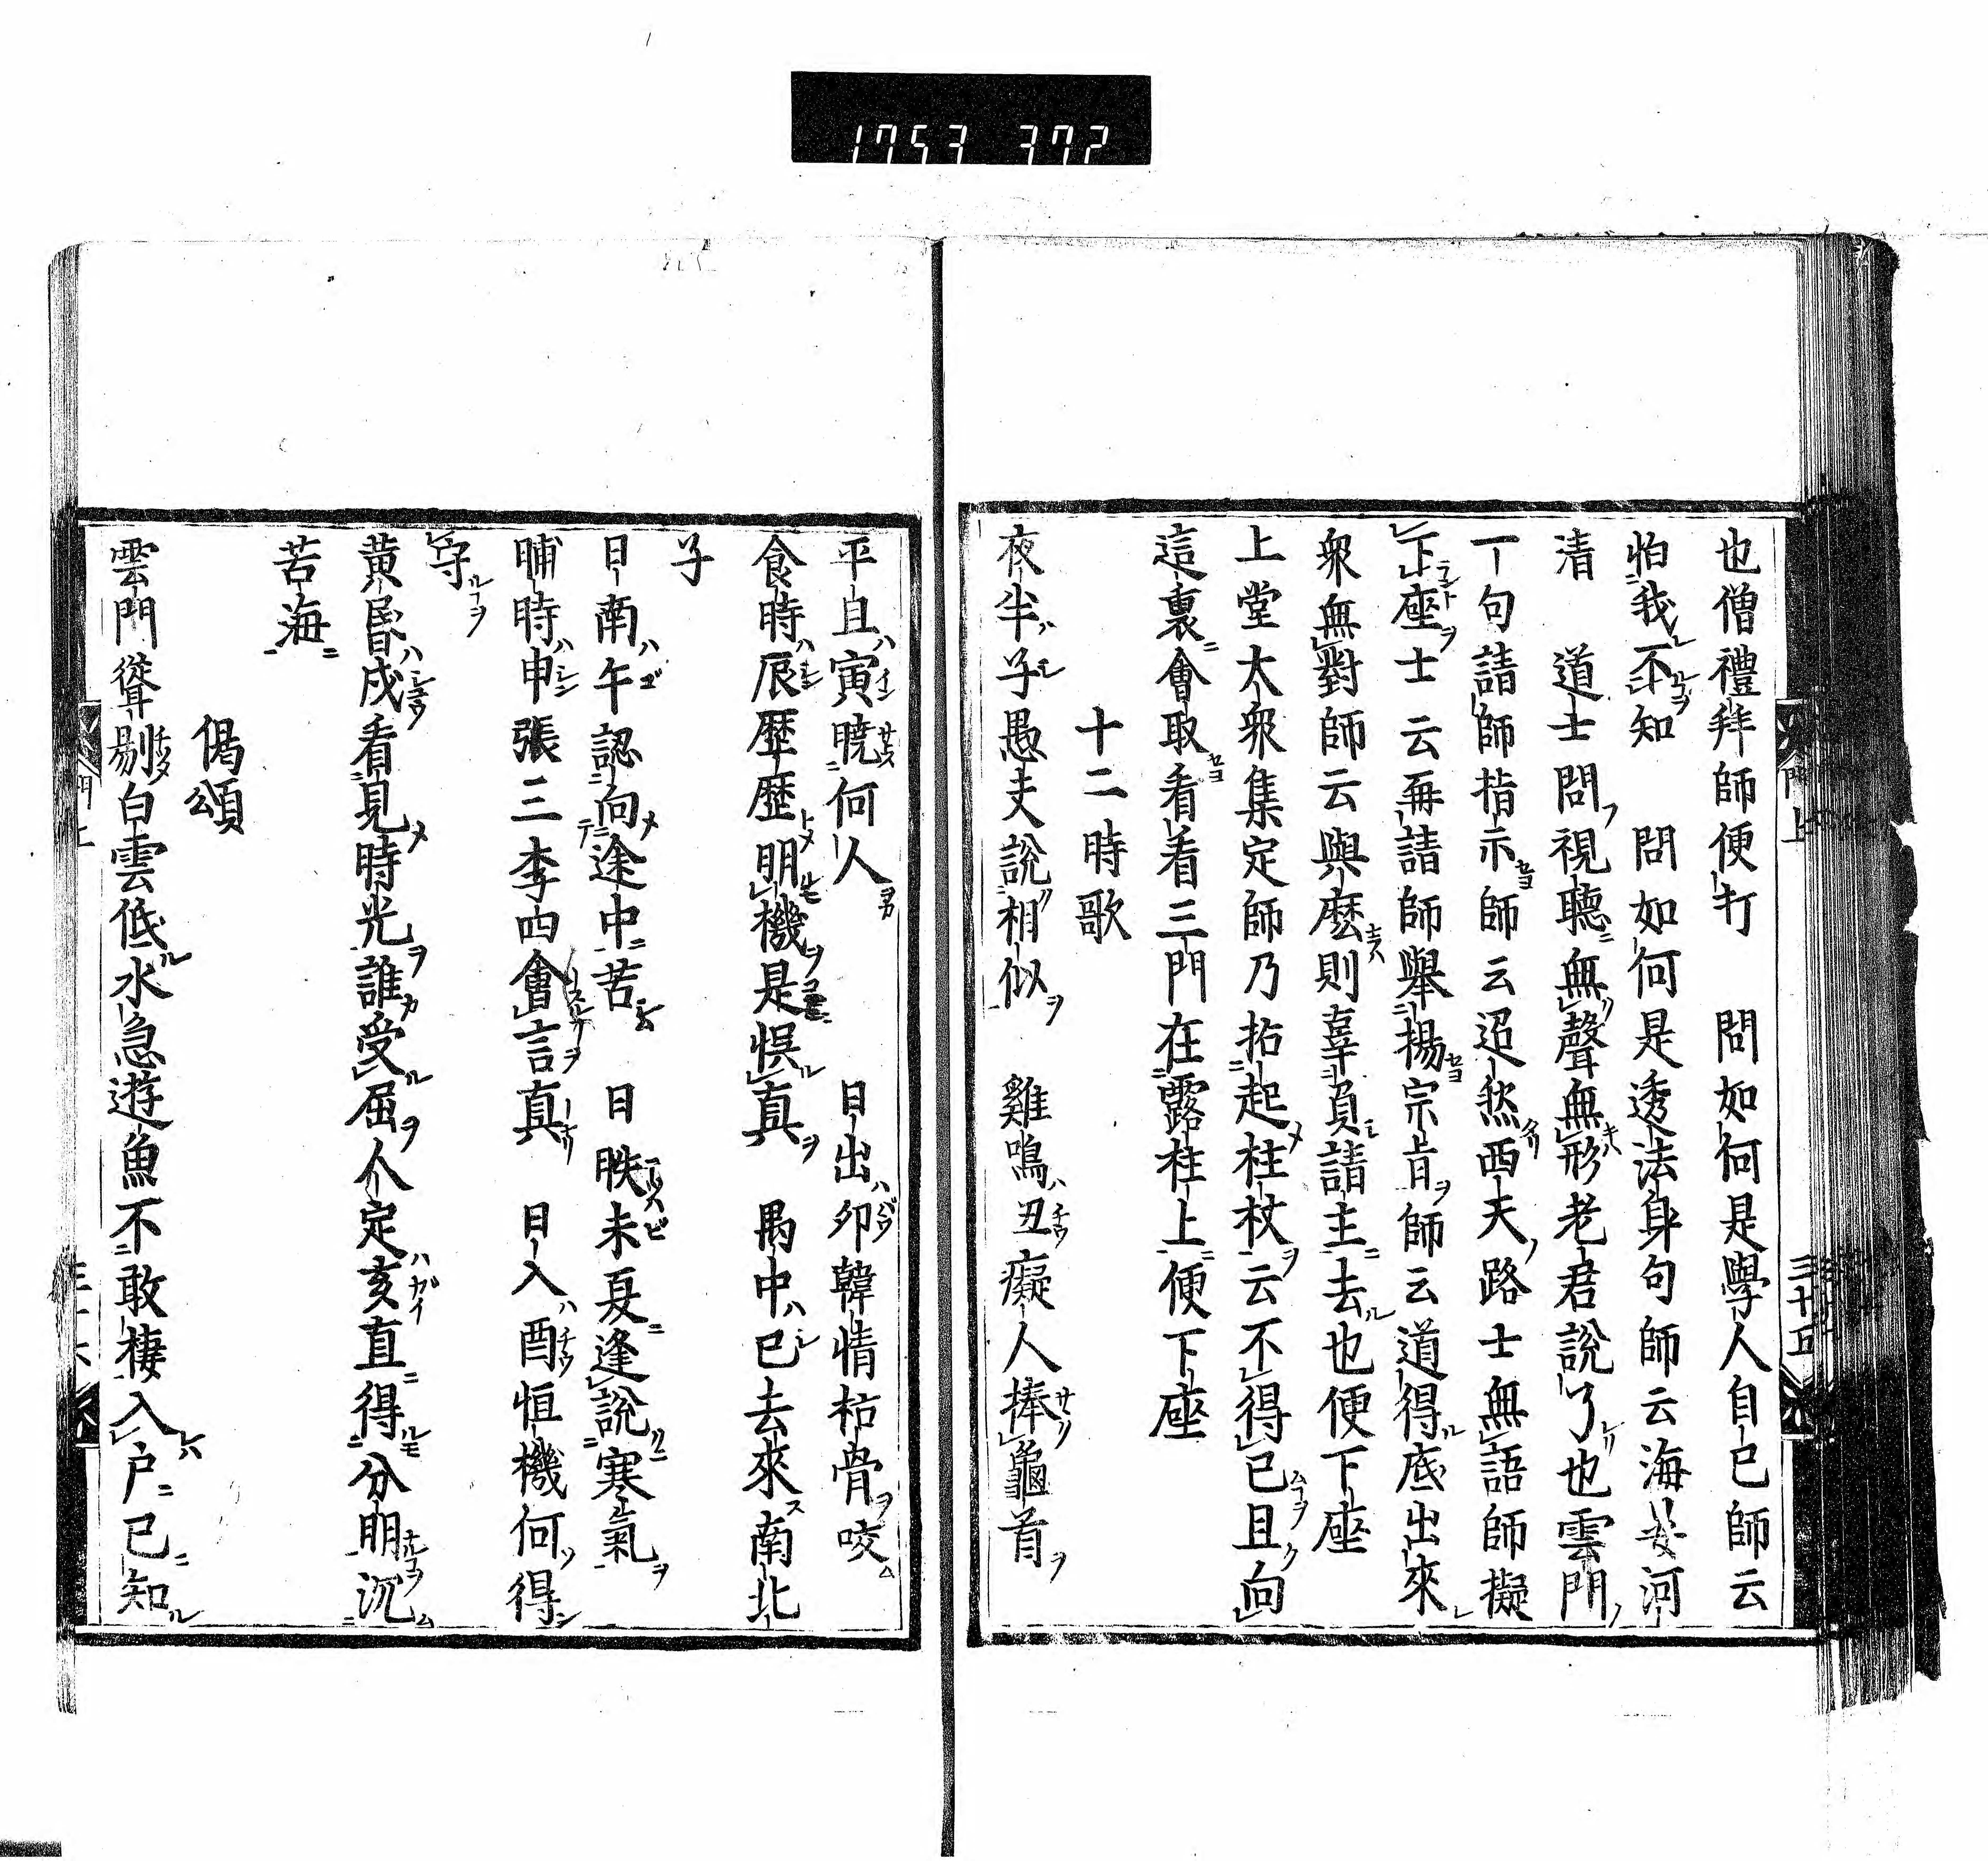 1753 372
也僧禮拜師便打　問如何是學人自己師云
怕我不知　問如何是透法身句師云海晏河
清　道士問視聽無聲無形老君說了也雲門
一句請師指示師云迢然西天路士無語師擬
下座士云再請師舉揚宗旨師云道得底出來
衆無對師云與麽則辜負請主去也便下座
上堂大衆集定師乃拈起柱杖云不得已且向
這裏會取看看三門在露柱上便下座
十二時歌
夜半子愚夫說相似　雞鳴丑癡人捧龜首
門上
三十五
平旦寅曉何人　日出卯韓情枯骨咬
食時辰歷歷明機是悞真　禺中巳去來南北
子
日南午認向途中苦　日昳未夏逢說寒氣
晡時申張三李四會言真　日入酉恒機何得
守
黄昏戌看見時光誰受屈人定亥直得分明沉
苦海
偈頌
雲門聳剔白雲低水急遊魚不敢棲入户已知